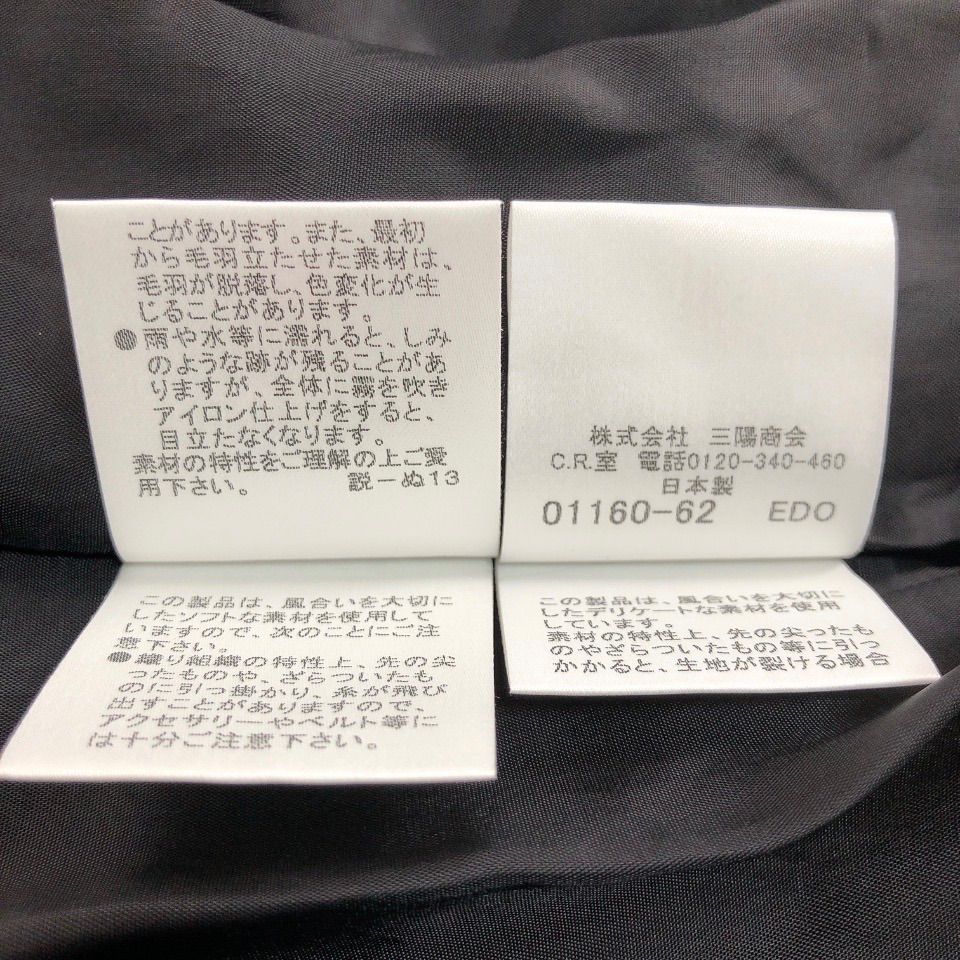 ことがあります。また、最初
から毛羽立たせた素材は、
毛羽が脱落し、色変化が生
じることがあります。
●雨や水等に濡れると、しみ
のような跡が残ることがあ
りますが、全体に霧を吹き
アイロン仕上げをすると、
目立たなくなります。
素材の特性をご理解の上ご愛
用下さい。 説−ぬ13
株式会社 三陽商会
C.R.室 電話0120-340-460
日本製
01160-62 EDO
この製品は、風合いを大切に
したソフトな素材を使用して
いますので、次のことにご注
意下さい。
●織り組織の特性上、先の尖
ったものや、ざらついたも
のに引っ掛かり、糸が飛び
出すことがありますので、
アクセサリーやベルト等に
は十分ご注意下さい。
この製品は、風合いを大切に
したデリケートな素材を使用
しています。
素材の特性上、先の尖ったも
のやざらついたもの等に引っ
かかると、生地が裂ける場合